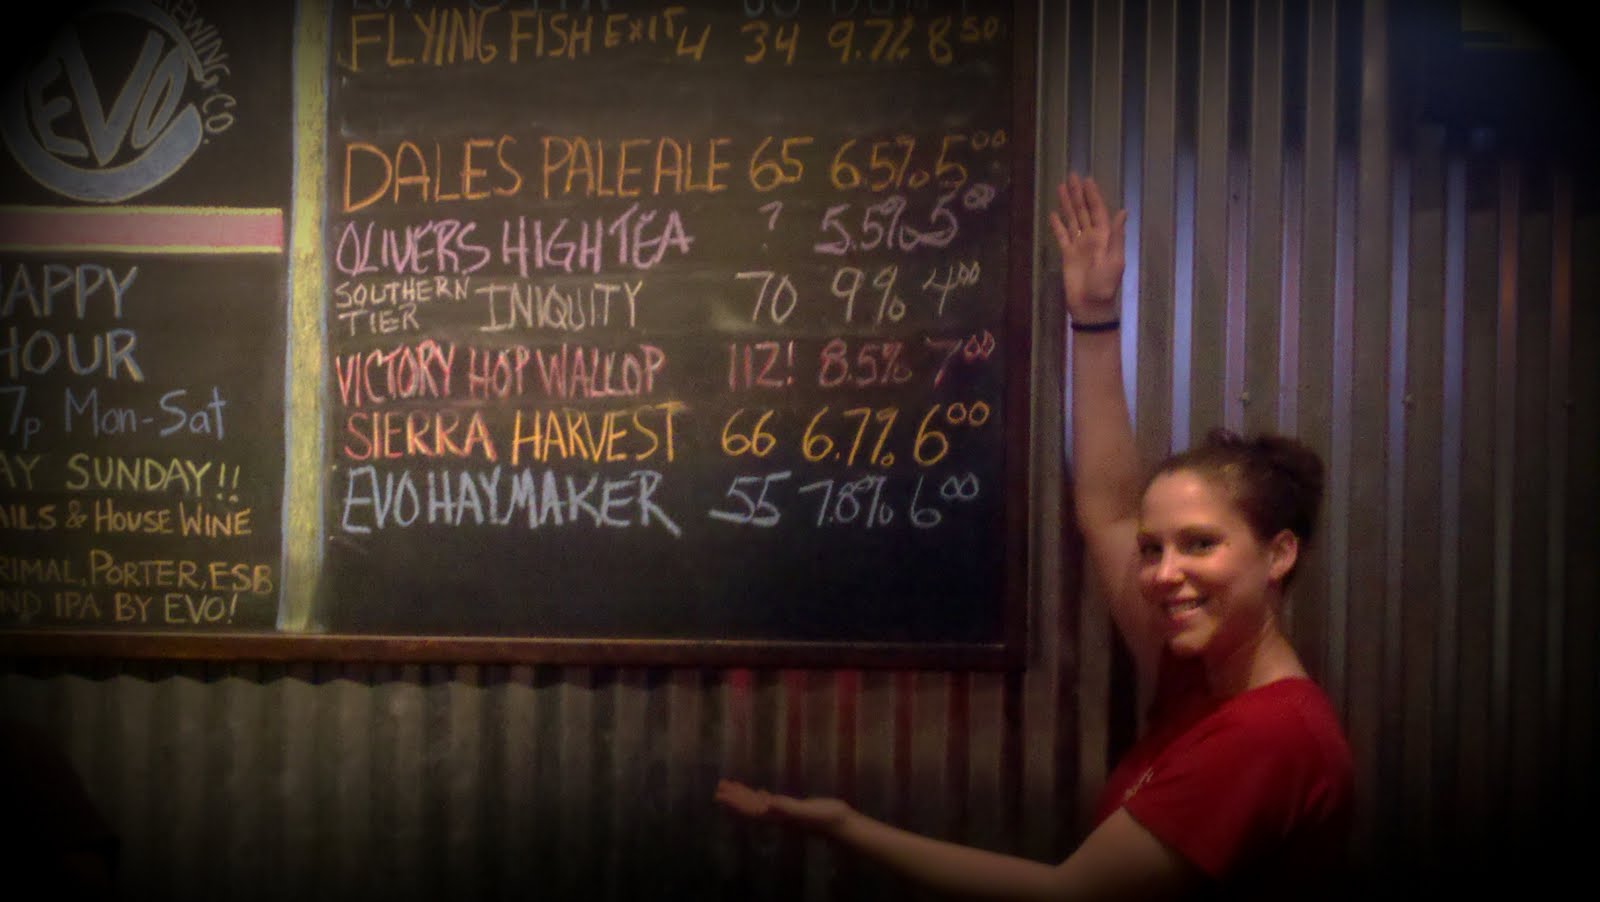 EWING CO.
EVO
HAPPY
HOUR
7p Mon-Sat
AY SUNDAY!!
AILS & HOUSE WINE
RIMAL, PORTER, ESB
ND IPA BY EVO!
FLYING FISH EXIT 4 34 9.7% 8 50
DALES PALE ALE 65 6.5% 5 00
OLIVERS HIGH TEA ? 5.5% 5 00
SOUTHERN TIER INIQUITY 70 9% 4 00
VICTORY HOP WALLOP 112! 8.5% 7 00
SIERRA HARVEST 66 6.7% 6 00
EVO HAYMAKER 55 7.8% 6 00